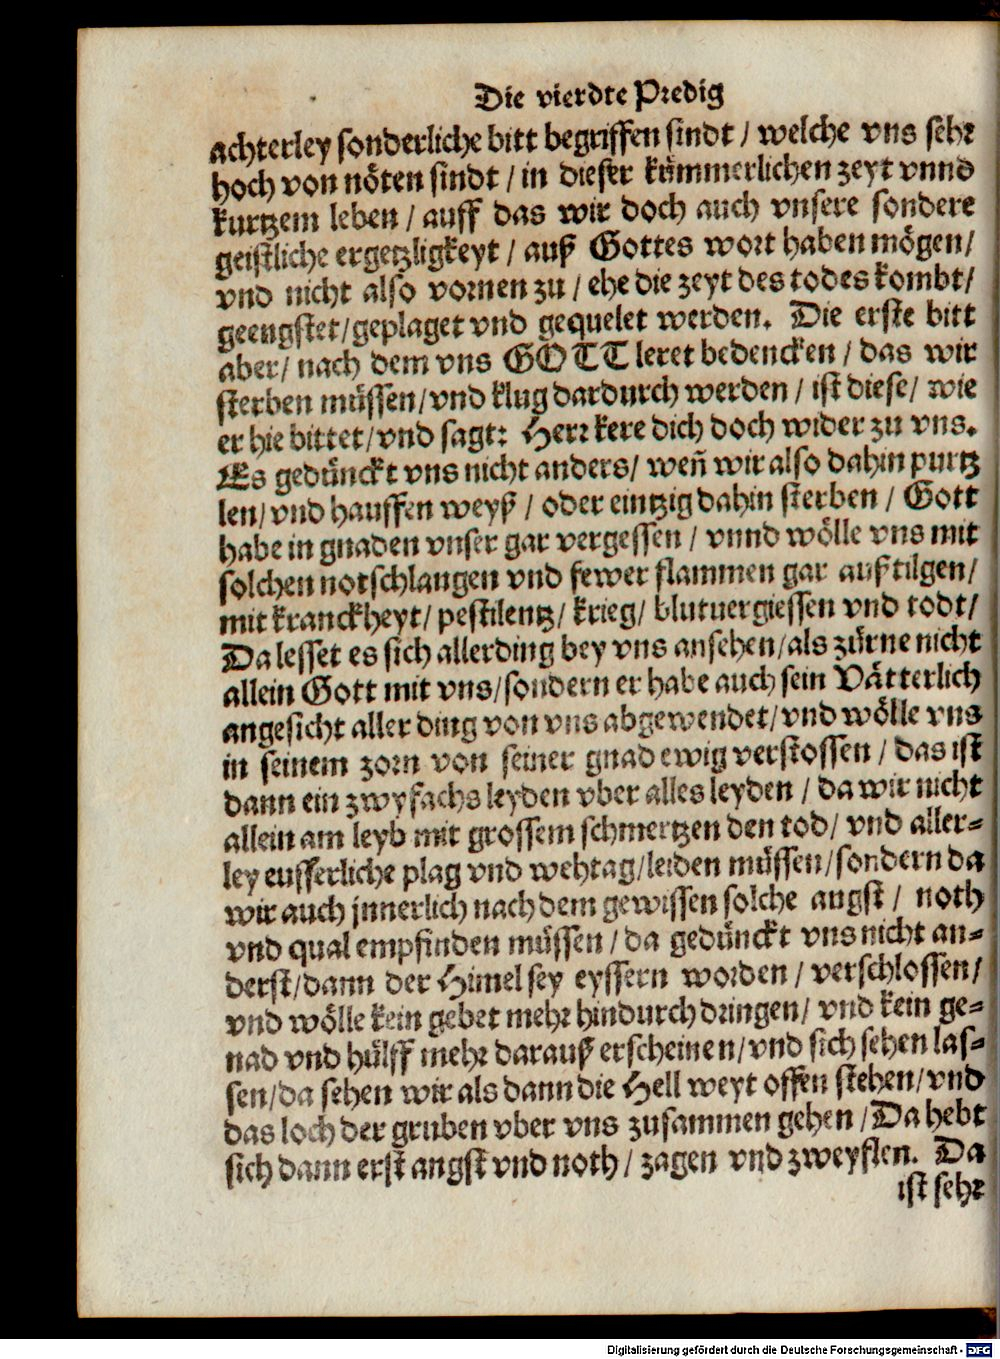 Die vierdte Predig
achterley sonderliche bitt begriffen sindt / welche vns sehr
hoch von nöten sindt / in dieser kümmerlichen zeyt vnnd
kurtzem leben / auff das wir doch auch vnsere sondere
geistliche ergetzligkeyt / auß Gottes wort haben mögen /
vnd nicht also vornen zu / ehe die zeyt des todes kombt /
geengstet / geplaget vnd gequelet werden. Die erste bitt
aber / nach dem vns GOTT leret bedencken / das wir
sterben müssen / vnd klug dardurch werden / ist diese / wie
er hie bittet / vnd sagt: Herr kere dich doch wider zu vns.
Es gedünckt vns nicht anders / weñ wir also dahin purtz
len / vnd hauffen weyß / oder eintzig dahin sterben / Gott
habe in gnaden vnser gar vergessen / vnnd wölle vns mit
solchen notschlangen vnd fewer flammen gar außtilgen /
mit kranckheyt / pestilentz / krieg / blutuergiessen vnd todt /
Da lesset es sich allerding bey vns ansehen / als zürne nicht
allein Gott mit vns / sondern er habe auch sein Vätterlich
angesicht aller ding von vns abgewendet / vnd wölle vns
in seinem zorn von seiner gnad ewig verstossen / das ist
dann ein zwyfachs leyden vber alles leyden / da wir nicht
allein am leyb mit grossem schmertzen den tod / vnd aller-
ley eusserliche plag vnd wehtag / leiden müssen / sondern da
wir auch jnnerlich nach dem gewissen solche angst / noth
vnd qual empfinden müssen / da gedünckt vns nicht an-
derst / dann der Himel sey eyssern worden / verschlossen /
vnd wölle kein gebet mehr hindurch dringen / vnd kein ge-
nad vnd hülff mehr darauß erscheinen / vnd sich sehen las-
sen / da sehen wir als dann die Hell weyt offen stehen / vnd
das loch der gruben vber vns zusammen gehen / Da hebt
sich dann erst angst vnd noth / zagen vnd zweyflen. Da
ist sehr
Digitalisierung gefördert durch die Deutsche Forschungsgemeinschaft - DFG